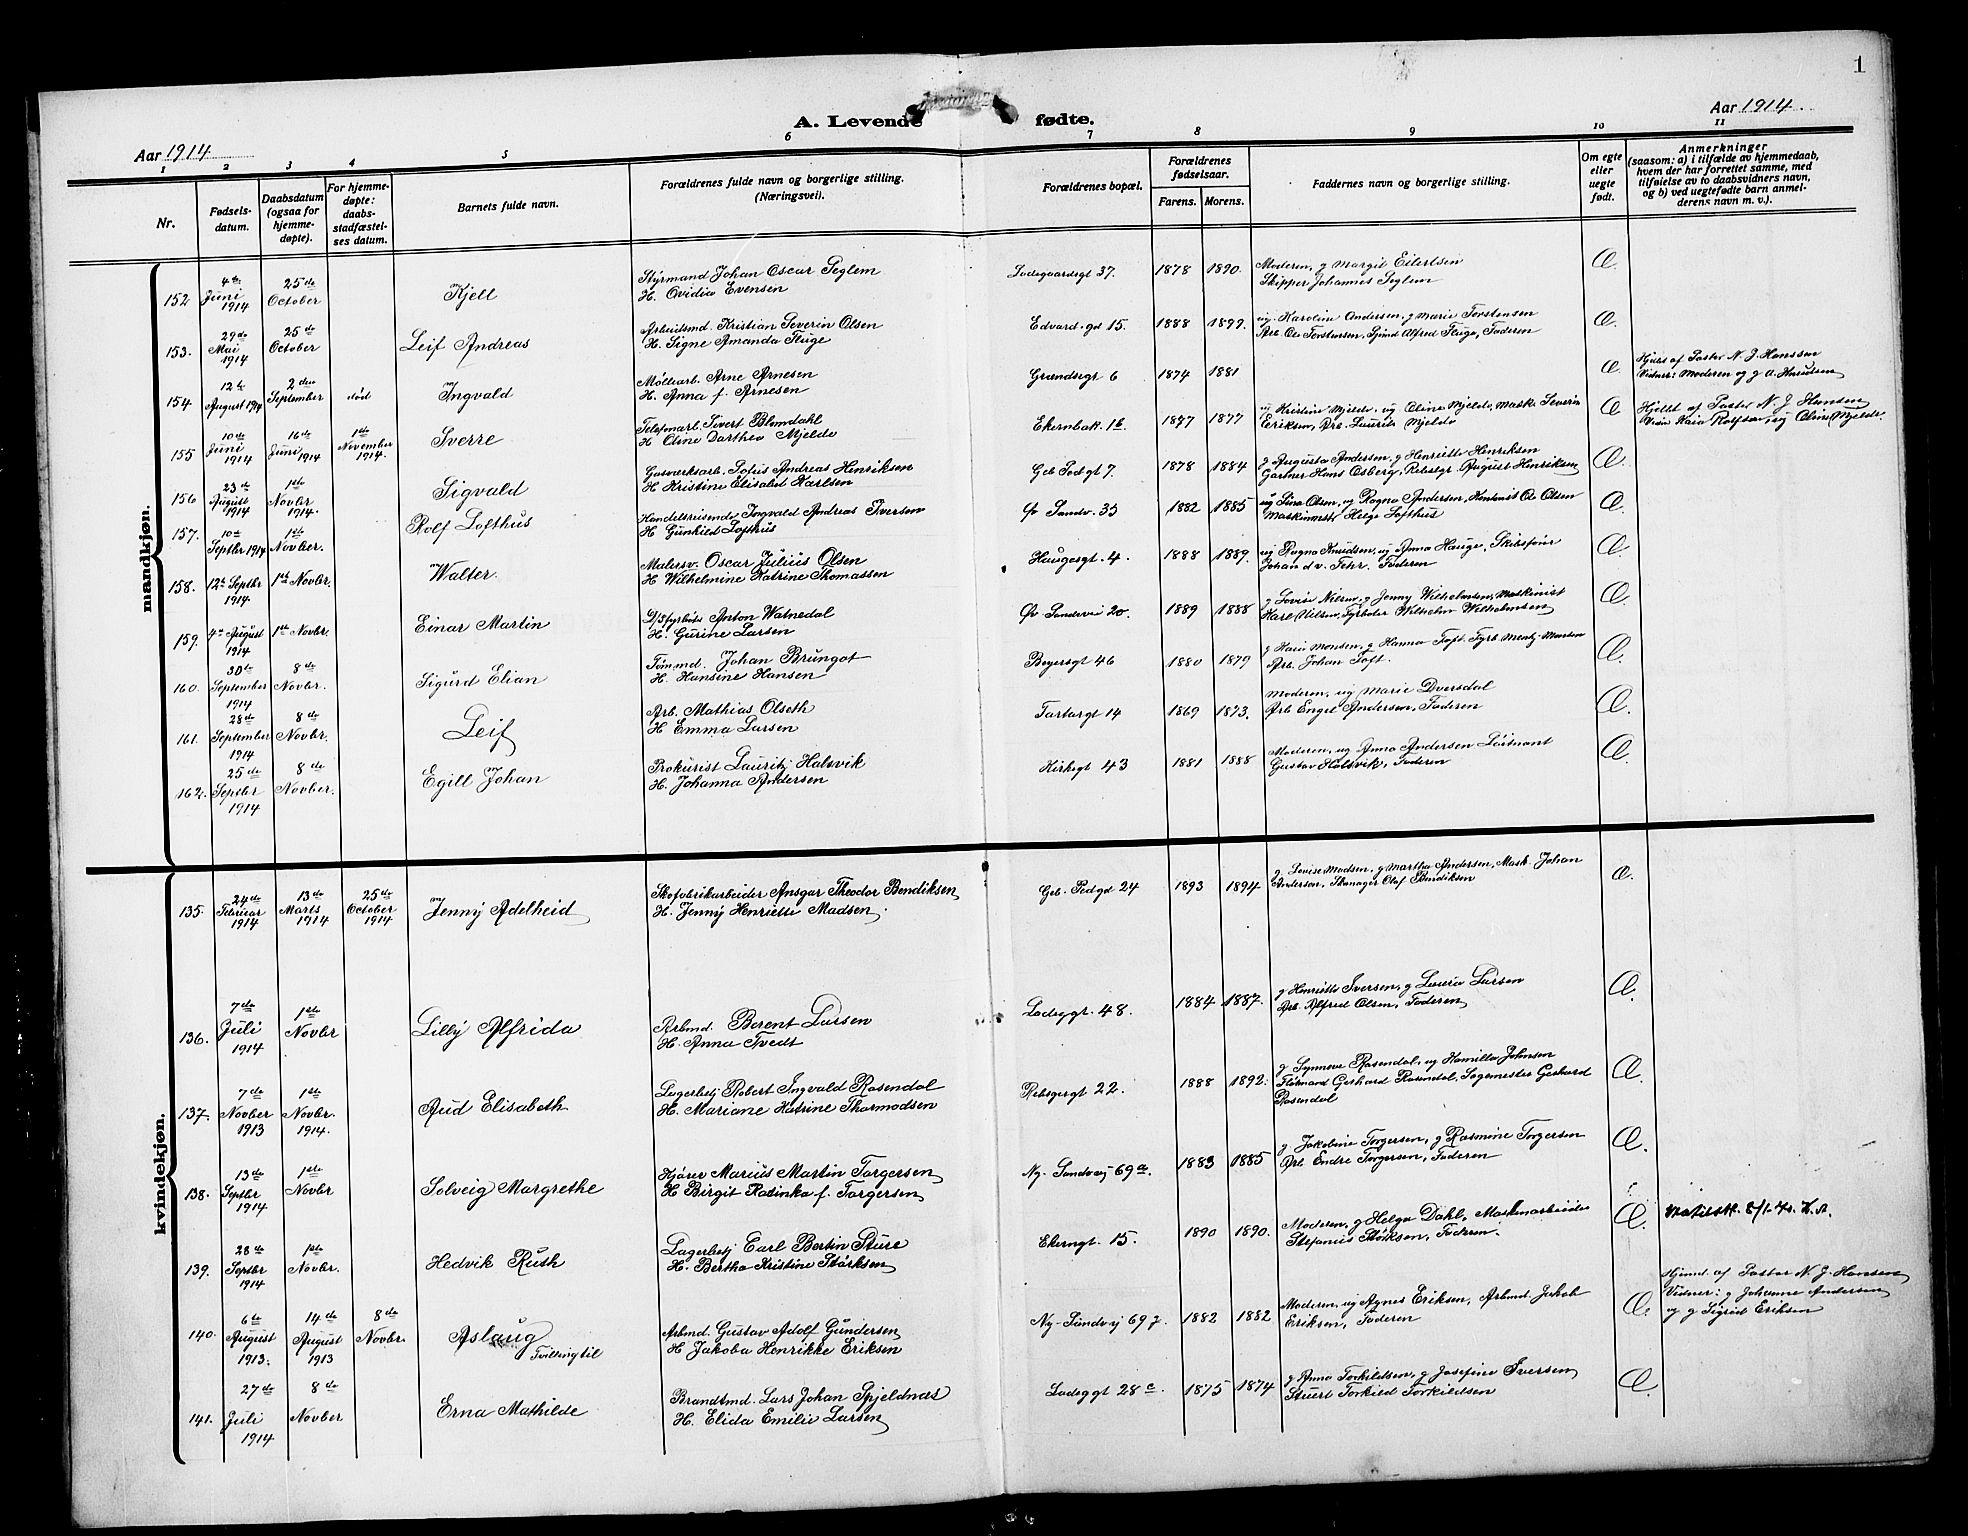 1
Aar 1914.
A. Levende fødte.
Aar 1914
1 2 3 4 5 6 7 8 9 10 11
Nr.
Fødsels-
datum.
Daabsdatum
(ogsaa for
hjemme-
døpte).
For hjemme-
døpte:
daabs-
stadfæstel-
ses datum.
Barnets fulde navn.
Forældrenes fulde navn og borgerlige stilling.
(Næringsvei).
Forældrenes bopæl.
Forældrenes
fødselsaar.
Farens. Morens.
Faddernes navn og borgerlige stilling.
Om egte
eller
uegte
født.
Anmerkninger
(saasom: a) i tilfælde av hjemmedaab,
hvem der har forrettet samme, med
tilføielse av to daabsvidners navn,
og b) ved uegtefødte barn anmel-
derens navn m. v.).
mandkjøn.
152 4de Juni 1914 25de October Kjell
Styrmand Johan Oscar Seglem
H. Ovidia Evensen
Lodegaardsgt 37. 1878 1890.
Moderen, g Margit Eilertsen
Skipper Johannes Seglem
Æ.
153. 29de Mai 1914 25de October Leif Andreas
Arbeidsmd. Kristian Severin Olsen
H. Signe Amanda Fluge
Edvard. gd 15. 1888
ug. Karoline Andersen, g Marie Torstensen
Arb. Ole Torstensen, Alfred Fluge, Faderen
Æ.
154. 12te August 1914 2den September død Ingvald
Møllearb. Arne Arnesen
H. Anna f. Arnesen
Grændsegt 6 1874 1881
Æ
Hjdbt af Pastor N. J. Hanssen
Vidner: Moderen og g A. Knudsen
155 10de Juni 1914 16de Juni 1914 1ste November 1914. Sverre
Telefonarb. Sivert Blomdahl
H Oline Dorthea Mjelde
Ekernbak. 1877
ug Kristine Mjelde, ug Oline Mjelde, Mask. Severin
Eriksen, Arb. Laurits Mjelde
Æ
Hjdbt af Pastor N. J. Hansen
Oline Mjelde.
156 23de August 1914 1ste Novbr 1914. Sigvald
Gasverksarb. Andreas Henriksen
H Kristine Elisabet Karlsen
Geb Podgt 7. 1878 1884
g Augusta Andersen, g Henriette Henriksen
Gartner Hans Osberg, August Henriksen
Æ
157. 10de Septbr 1914 1ste Novbr. Rolf Lofthus
Handelsreisende Ingvald Andreas Iversen
H Gunhild Lofthus
Øv Sandv. 35 1882 1885
ug Lina Olsen, ug Ragna Andersen, Ole Olsen
Maskinmst Helge Lofthus
Æ.
158. 12te Septbr 1914 1ste Novbr. Walter.
Malersv. Oscar Julius Olsen
H Wilhelmine Katrine Thomassen
Haugesgt. 4. 1888 1889.
ug Ragna Knudsen, ug Anna Hauge, Skibsfører
Johan d. v. Fehr. Faderen
Æ
159. 4de August 1914 1ste Novbr. Einar Martin
D/Sfyrbøter Anton Watnedal
H. Gurine Larsen
Øv Sandvei 20. 1889 1888
g Lovise Nilsen, g Jenny Wilhelmsen, Maskinist
Nilsen, Fyrbøter Wilhelm Wilhelmsen
Æ.
160. 30de September 1914 8de Novbr. Sigurd Elian
Tømmd. Johan Brungot
H. Hansine Hansen
Beyersgt 46 1880 1879
g Monsen, g Hanna Toft. Fyrb. Mentz Monsen
Arb. Johan Toft.
Æ.
161. 28de September 1914 8de Novbr. Leif
Arb. Mathias Olseth
H Emma Larsen
Tartargt 14 1869 1873.
Moderen, ug Marie Dversdal
Arb Engel Andersen, Faderen
Æ.
162. 25de Septbr 1914 8de Novbr. Egill Johan
Prokurist Lauritz Halsvik
H. Johanna Andersen
Kirkegt 43 1881 1888
Moderen, ug Anna Andersen Løitnant
Gustav Halsvik, Faderen
Æ.
kvindekjøn.
135. 24de Februar 1914 13de Marts 1914 25de October 1914 Jenny Adelheid
Skofabrikarbeider Ansgar Theodor Bendiksen
H. Jenny Henriette Madsen.
Geb. Pedgd 24 1893 1894
g. Lovise Madsen, g Martha Andersen, Mask. Johan
Andersen, Olaf Bendiksen
Æ.
136. 7de Juli 1914 1ste Novbr Lilly Alfrida
Arbmd. Berent Larsen
H. Anna Tvedt
Lodeggt. 48. 1884 1887.
g Henriette Iversen, g Larsen
Arb. Alfred Olsen, Faderen
Æ.
137. 7de Novber 1913 1ste Novbr. 1914. Aud Elisabeth
Lagerbetj Robert Ingvald Rosendal
H. Mariane Katrine Thormodsen
Rebsgergt 22. 1888 1892.
g Synneve Rosendal, ug Kamilla Johnsen
Gerhard Rosendal, Gerhard
Rosendal
Æ.
138. 13de Septbr 1914 1ste Novbr Solveig Margrethe
Kjører Marius Martin Torgersen
H Birgit Rasinka f. Torgersen
Ny-Sandvej 69a. 1883 1885
g. Jakobine Torgersen, g Rasmine Torgersen
Arb Endre Torgersen, Faderen
Æ.
139. 28de Septbr 1914 1ste Novbr. Hedvik Ruth
Lagerbetj Carl Bertin Sture
H. Bertha Kristine Størksen
Ekerngt. 15. 1890 1890.
Moderen, g Helga Dahl, Maskinarbeider
Stefanus Størksen, Faderen.
Æ.
140. 6te August 1913. 14de August 1913 8de Novbr. Aslaug
Tvillingtil
Arbmd. Gustav Adolf Gundersen
H Jakoba Henrikke Eriksen
Ny-Sandvej 69 1882 1882
Moderen, ug Agnes Eriksen, Arbmd. Jakob
Eriksen, Faderen
Æ.
Hjmd. af Pastor N. J. Hansen
Vidner: g Johanne Andersen
og g Sigrid Eriksen
141. 27de Juli 1914 8de Novber Erna Mathilde
Brandtmd. Lars Johan Spjeldnæs
H. Elida Emilie Larsen
Lodeggt 28c. 1875 1874
g Anna Torkildsen, g Josefine Iversen
Stuert Torkild Torkildsen
Æ.